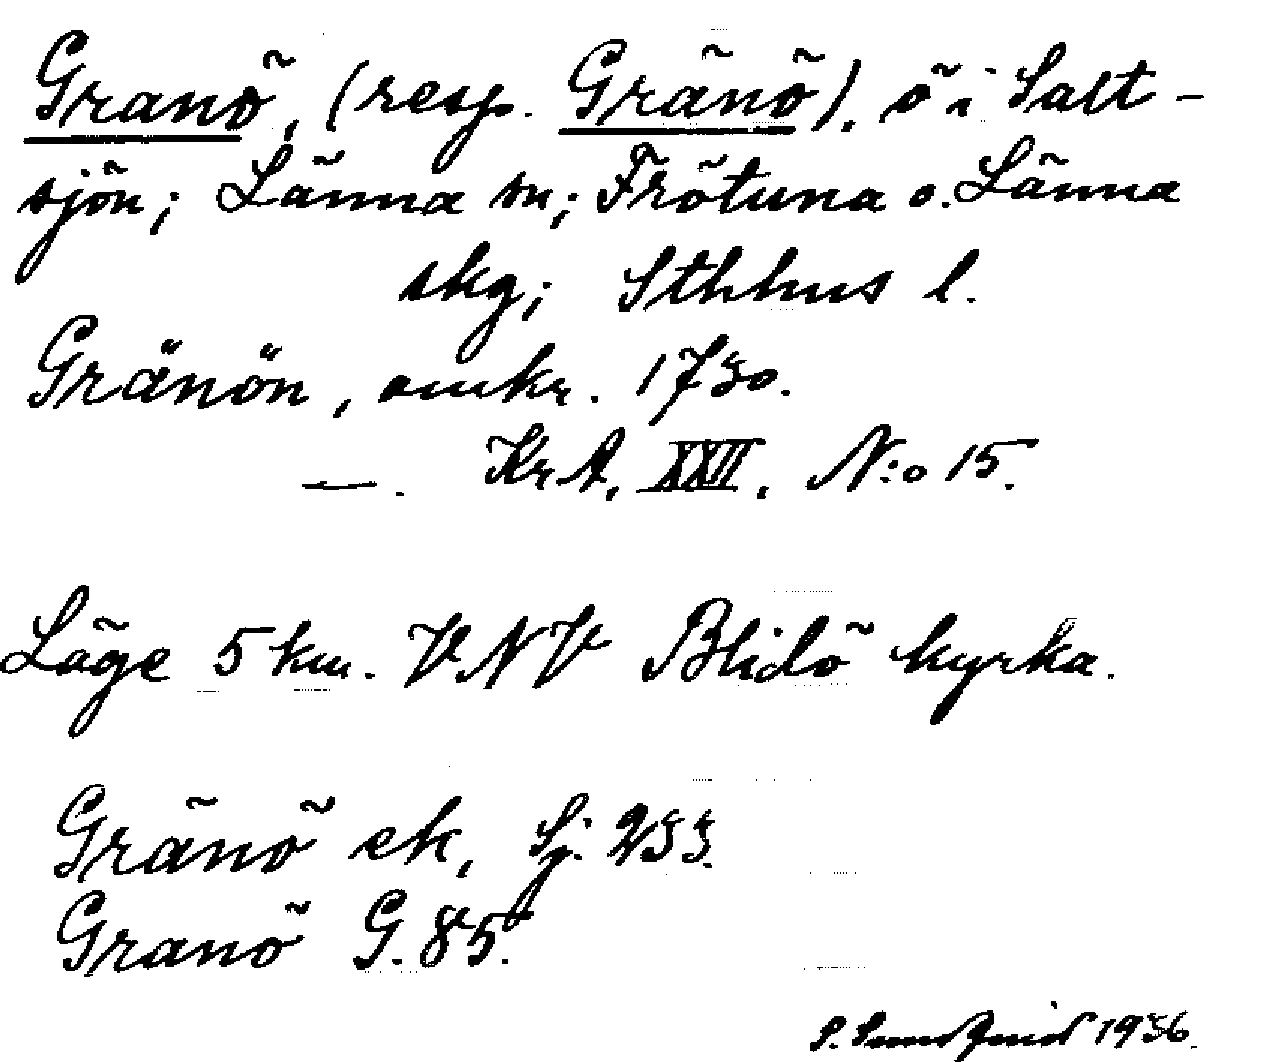 Granö, (resp. Gränö). ö i Salt-
sjön; Länna sn; Frötuna o. Länna
skg; Sthhus l.
Gränön, omkr. 1730.
—. Kr A. XXII. N:o 15.
Läge 5 km. VNV Blidö kyrka.
Gränö ek, Sj. 233.
Granö G. 85.
1936.